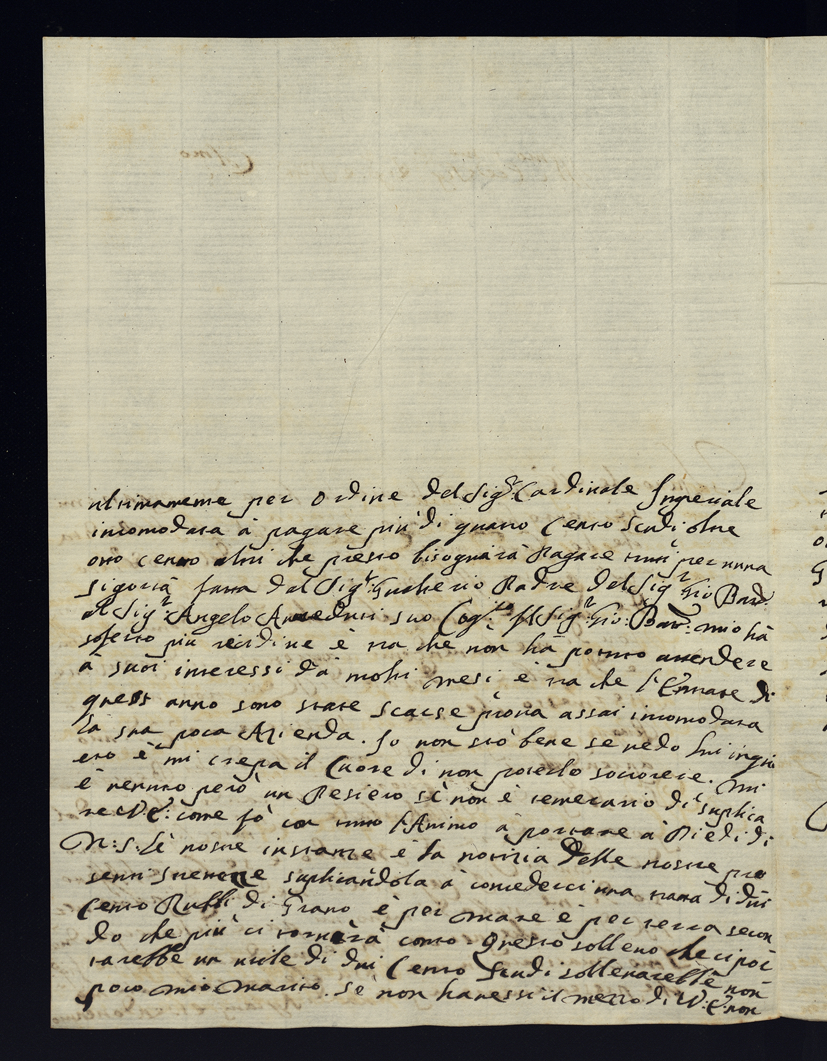 ultimamente per ordine del Sig:r Cardinale Imperiale
incomodata à pagare più di quatro Cento Scudi oltre
otto cento altri che presto bisognarà Pagare tutti per una
sigortà fatta dal Sig:r Padre del Sig:r Gio Batt:
al Sig:r Angelo suo Cog:to il Sig:r Gio: Batt: mio hà
soferto più recidine è ra che non hà potuto attendere
à suoi interessi dà molti mesi è ra che l'Entrate di
quest anno sono state scarse prova assai incomodata
la sua poca Azienda. Io non stò bene se vedo lui inqui
eto è mi crepa il Cuore di non poterlo socorere. Mi
è venuto però un Pesiero se non è temerario di suplica
re V: E: come fò con tutto l'Animo à portare à Piedi di
N: S: Le nostre instanze è la notitia delle nostre pre
senti suplicandola à concederci una tratta di dui
Cento Rubbi di Grano è per mare è per terra secon
do che più ci tornerà conto. Questo sollevo che ci por
tarebbe un utile di dui Cento Scudi sollevarebbe non
poco mio Marito. Se non havessi il mezzo di V: E: non